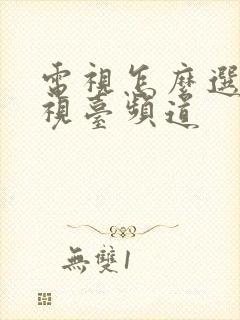 電視怎麼選
視臺頻道
無雙1